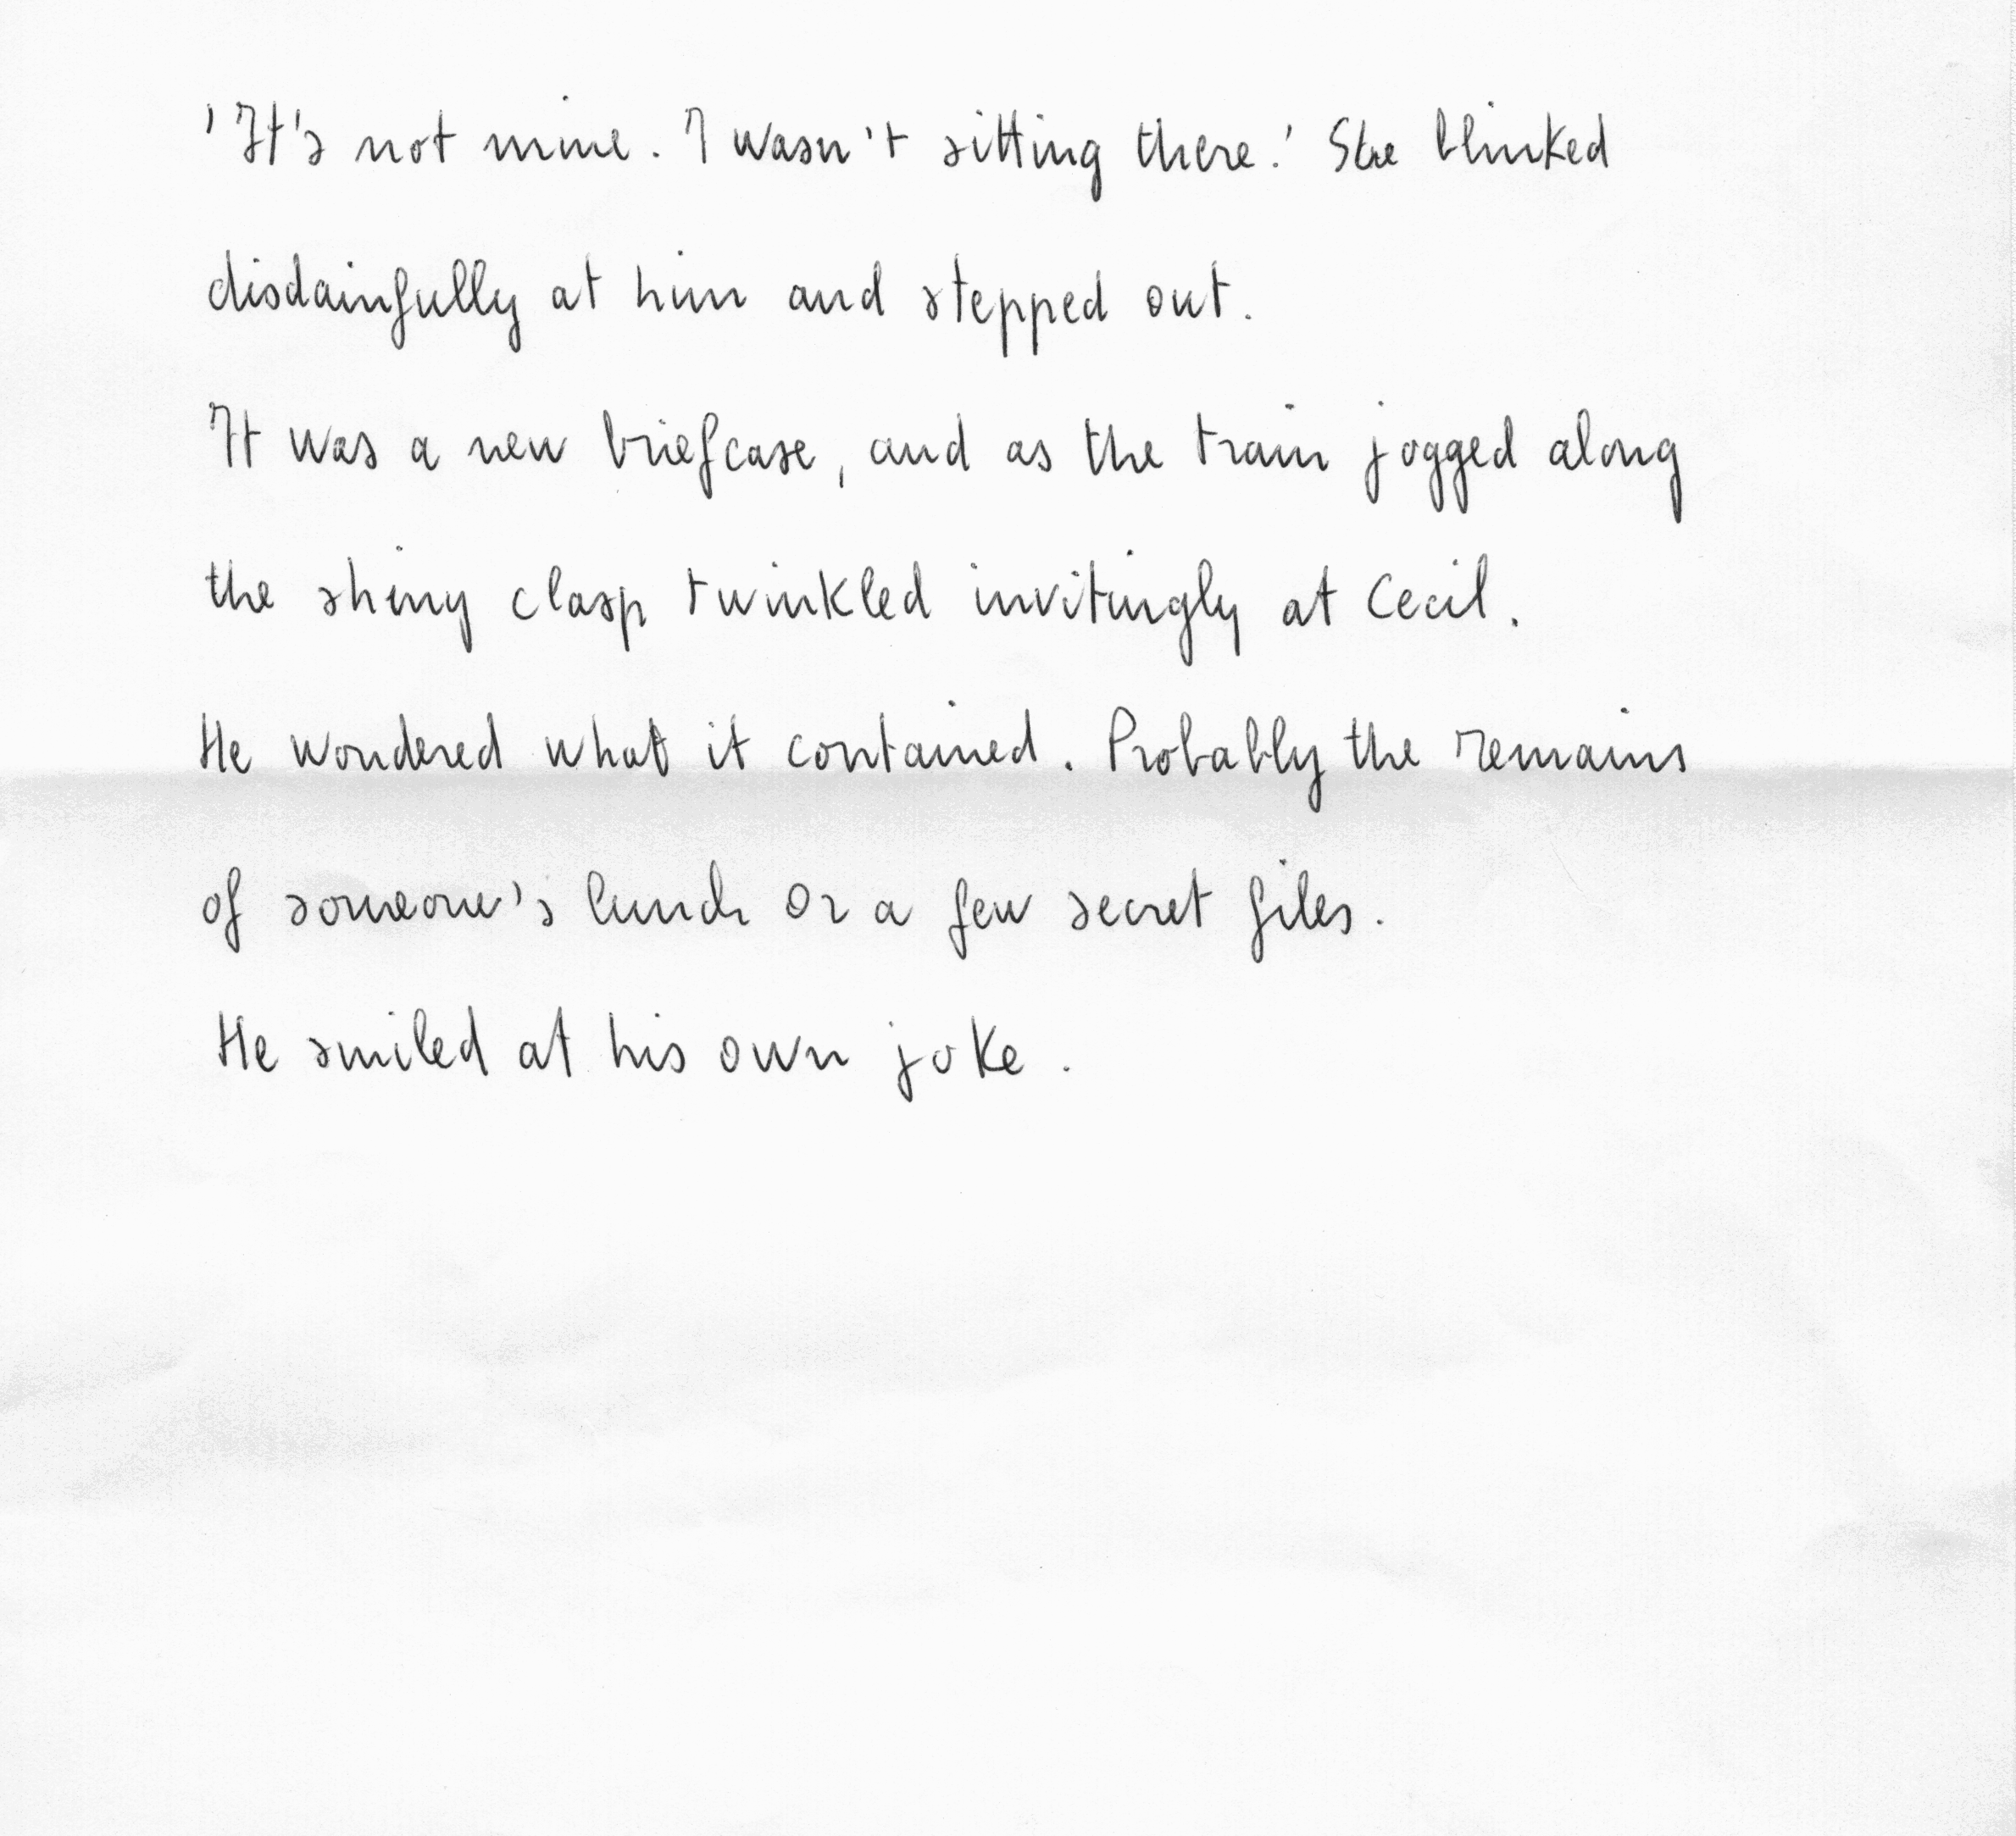 'It's not mine. I wasn't sitting there.' She blinked
disdainfully at him and stepped out.
It was a new briefcase, and as the train jogged along
the shiny clasp twinkled invitingly at Cecil.
He wondered what it contained. Probably the remains
of someone's lunch or a few secret files.
He smiled at his own joke.